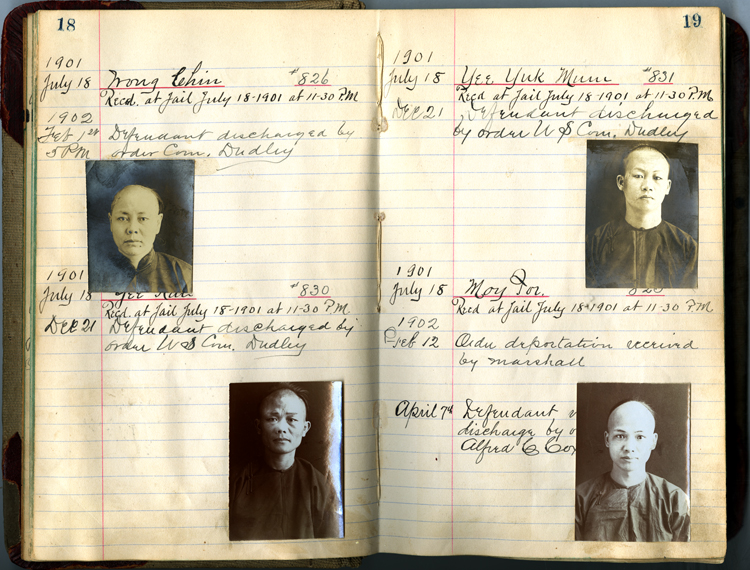 18
1901
July 18 Wong Chin #826
Recd. at Jail July 18-1901 at 11-30 P.M.
1902
Feb 1st Defendant discharged by
5 PM order Com. Dudley
1901
July 18 #830
Recd. at Jail July 18-1901 at 11-30 P.M.
Dec 21 Defendant discharged by
order U S Com. Dudley
19
1901
July 18 Yee Yuk Mum #831
Recd. at Jail July 18-1901 at 11-30 P.M.
Dec 21 Defendant discharged
by order U S Com. Dudley
1901
July 18 Moy
Recd at Jail July 18-1901 at 11-30 P.M.
1902
Feb 12 deportation
by marshall
April 7th Defendant
discharge by
Alfred C Cox